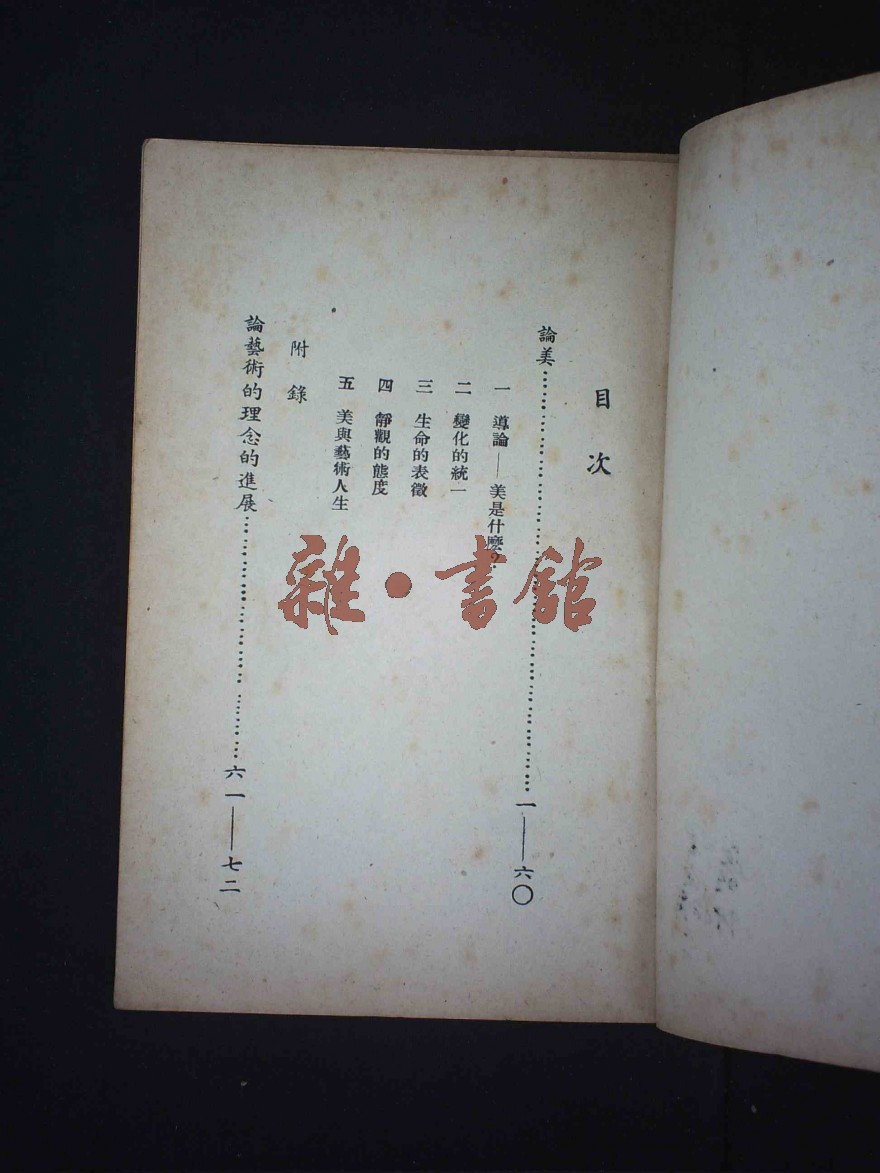 目次
論美……………………………………一——六〇
一 導論——美是什麼?
二 變化的統一
三 生命的表徵
四 靜觀的態度
五 美與藝術人生
附錄
論藝術的理念的進展……………………六一——七二
雜·書館